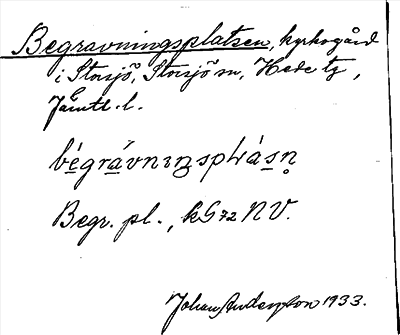 Begravningsplatsen, kyrkogård
i Storsjö, Storsjö sn, Hede tg,
Jämtl. l.
bégrávnıŋspɫásn̥
Begr. pl., kG 72 NV.
Johan Anderzon 1933.